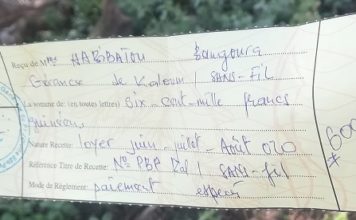 Reçu de Mme HABIBATOU Bangoura
Gérance de Kaloum / SANS-FIL
La somme de: (en toutes lettres) six-cent-mille francs
guinéens
Nature Recette: loyer juin-juillet-Août 020
Référence Titre de Recette: N°- PBP Kal / SANS-fil
Mode de Réglement: paiement espect
600